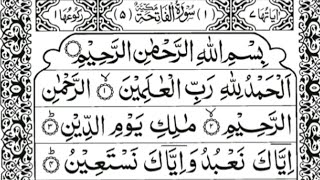 اٰيَاتُهَا ٧ (١) سُوْرَةُ الْفَاتِحَةِ مَكِّيَّةٌ (٥) رُكُوْعُهَا ١
بِسْمِ اللّٰهِ الرَّحْمٰنِ الرَّحِيْمِ
اَلْحَمْدُ لِلّٰهِ رَبِّ الْعٰلَمِيْنَ ۙ‏﴿۱﴾ الرَّحْمٰنِ
الرَّحِيْمِ ۙ‏﴿۲﴾ مٰلِكِ يَوْمِ الدِّيْنِ ؕ‏﴿۳﴾
اِيَّاكَ نَعْبُدُ وَاِيَّاكَ نَسْتَعِيْنُ ؕ‏﴿۴﴾